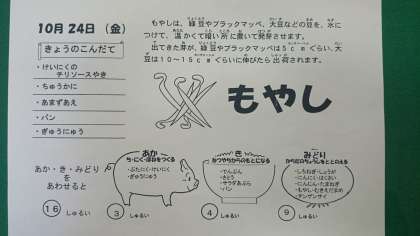 10月24日（金）
きょうのこんだて
・けいにくの
テリソースやき
・ちゅうかに
・あまずあえ
・パン
・ぎゅうにゅう
もやしは、緑豆やブラックマッペ、大豆などの豆を、水に
つけて、温かくて暗い所に置いて発芽させます。
出てきた芽が、緑豆やブラックマッペは5cmぐらい、大
豆は10～15cmぐらいに伸びたら出荷されます。
もやし
あか・き・みどり
を
あわせると
16 しゅるい
あか
ち・にく・ほねをつくる
・ぶたにく・けいにく
・ぎゅうにゅう
3 しゅるい
き
ねつやちからのもとになる
・でんぷん
・さとう
・サラダあぶら
・パン
4 しゅるい
みどり
からだのちょうしをととのえる
・しろねぎ・しょうが
・にんにく・はくさい
・にんじん・たまねぎ
・もやし・むきえだまめ
・チンゲンサイ
9 しゅるい